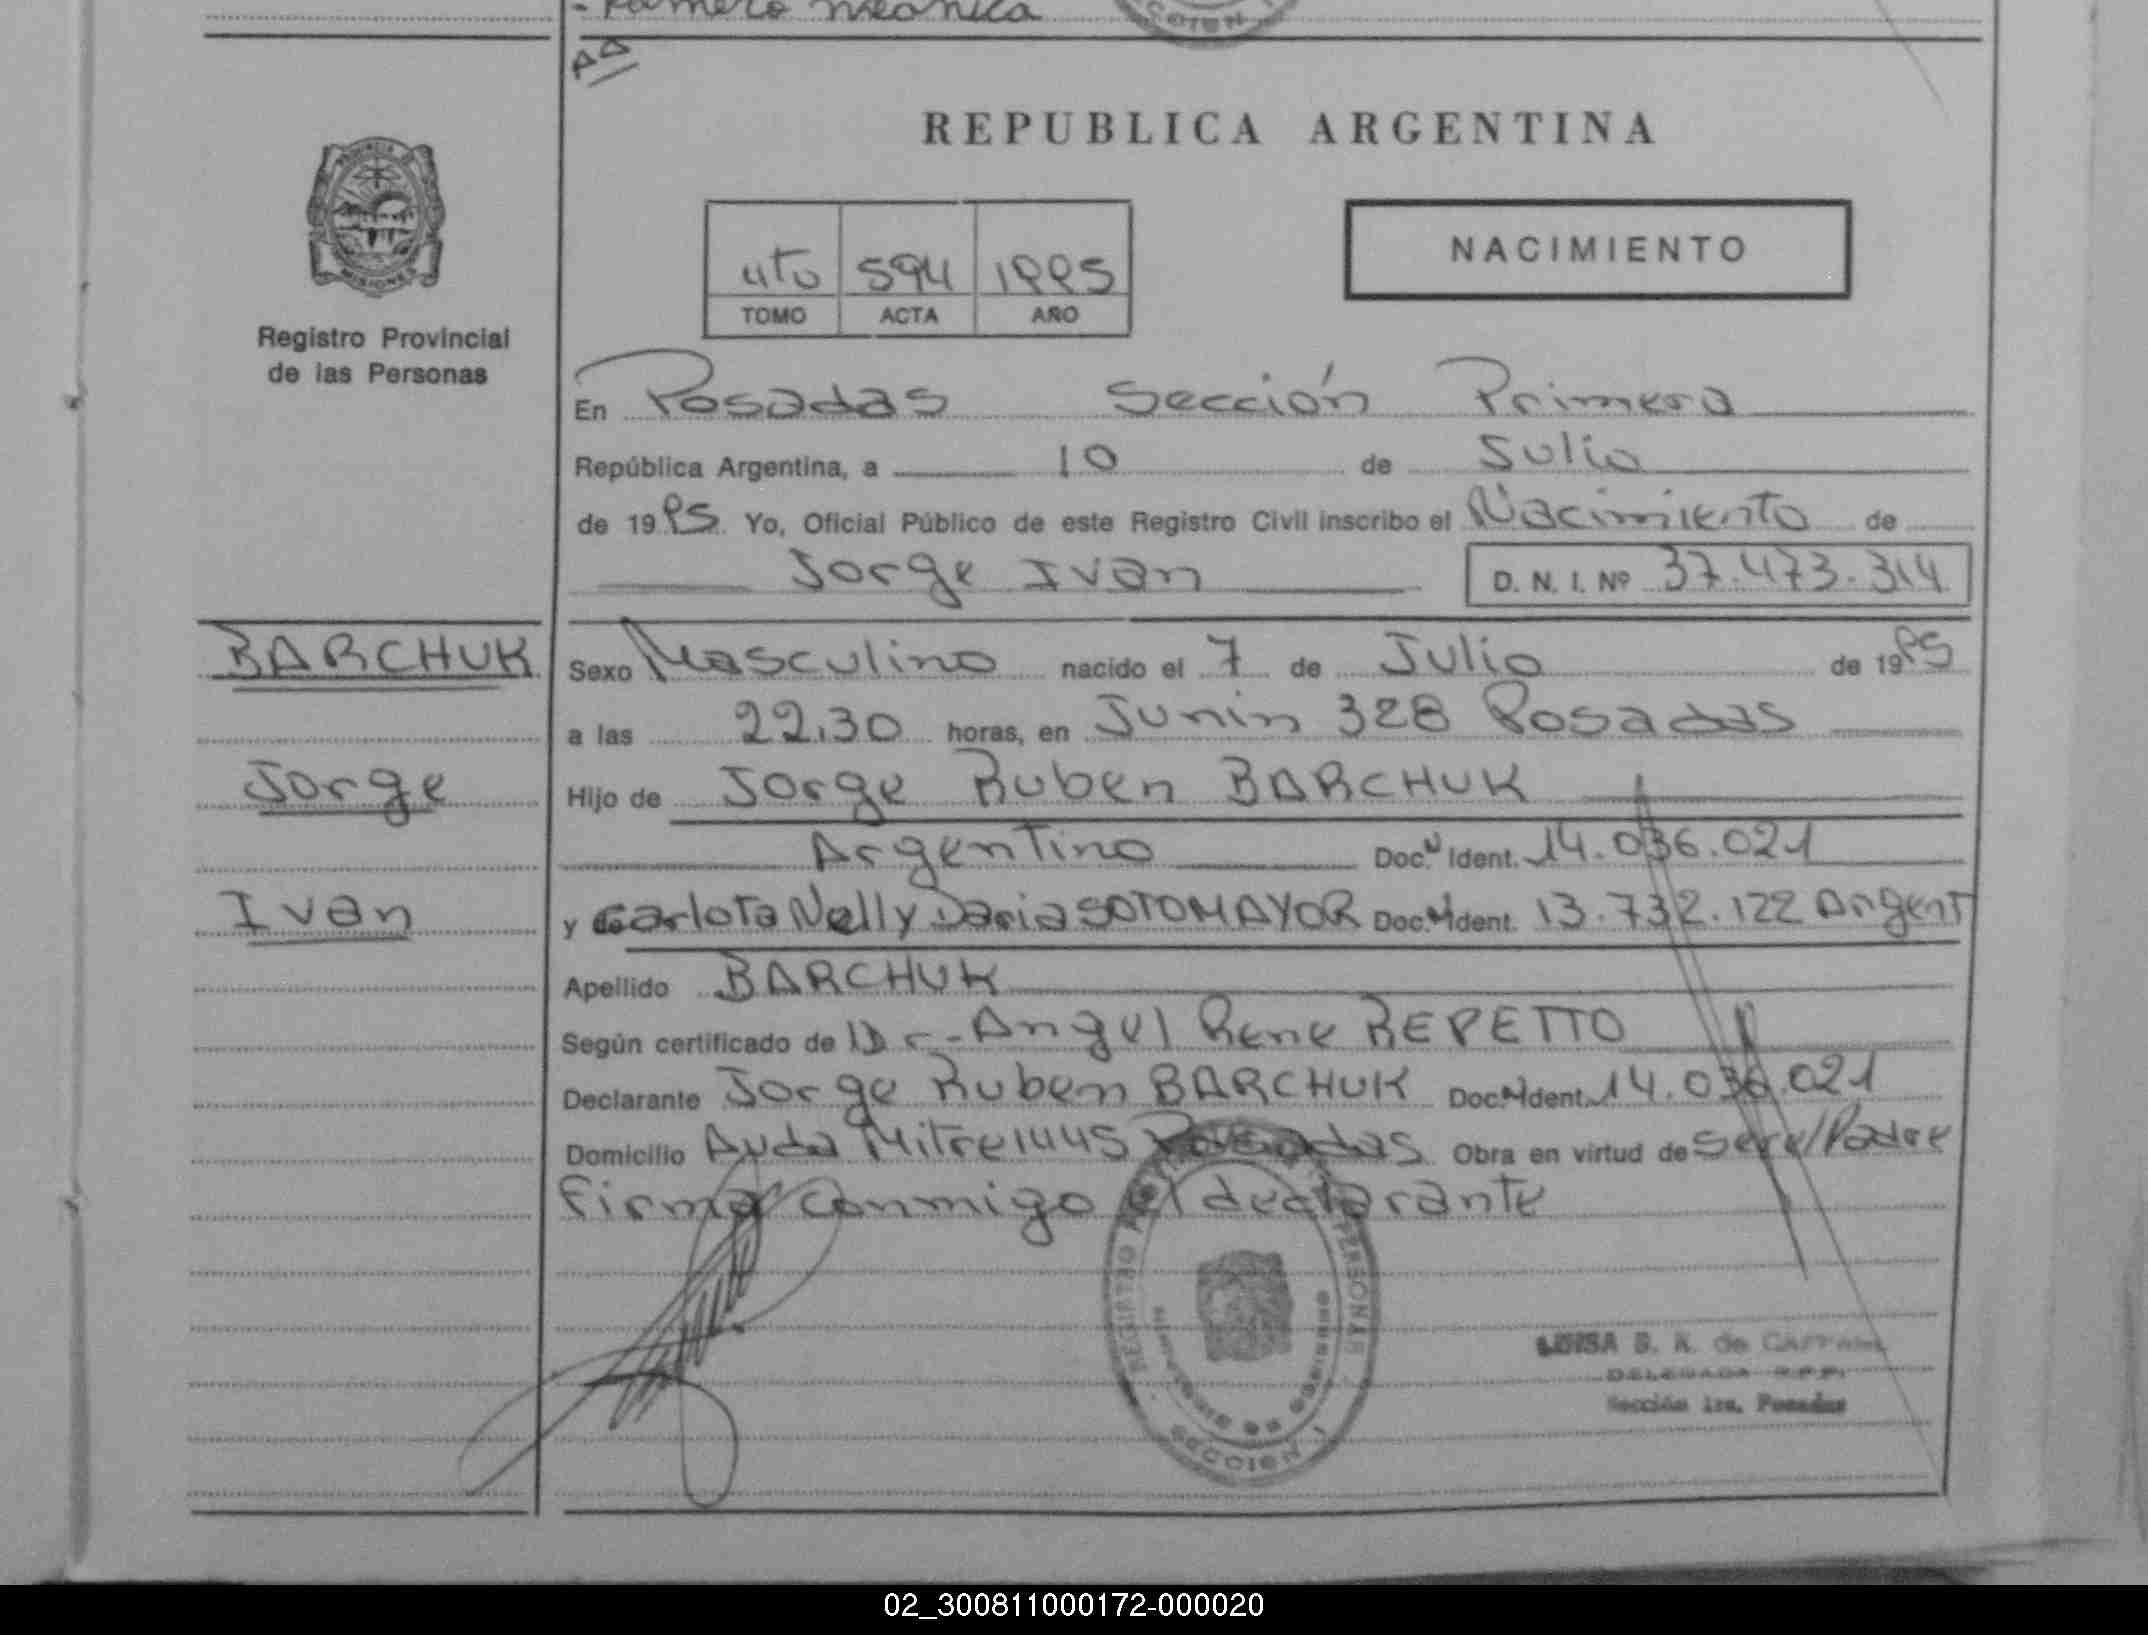 REPUBLICA ARGENTINA
PROVINCIA DE
MISIONES
Registro Provincial
de las Personas
4to 594 1995
TOMO ACTA AÑO
NACIMIENTO
En Posadas Sección Primera
República Argentina, a 10 de Julio
de 1995 Yo, Oficial Público de este Registro Civil inscribo el Nacimiento de
Jorge Ivan D. N. I. Nº 37.473.314
BARCHUK
Jorge
Ivan
Sexo Masculino nacido el 7 de Julio de 1995
a las 22,30 horas, en Junin 328 Posadas
Hijo de Jorge Ruben BARCHUK
Argentino Doc. Ident. 14.036.021
y de Carlota Nelly Daria SOTOMAYOR Doc. Ident. 13.732.122 Argent
Apellido BARCHUK
Según certificado de Dr. Angel Rene REPETTO
Declarante Jorge Ruben BARCHUK Doc. Ident. 14.036.021
Domicilio Avda Mitre 1445 Posadas Obra en virtud de Ser el Padre
Firma conmigo el declarante
SECCION 1
LUISA B. K. de
DELEGADA R.P.P.
Sección 1ra. Posadas
02_300811000172-000020